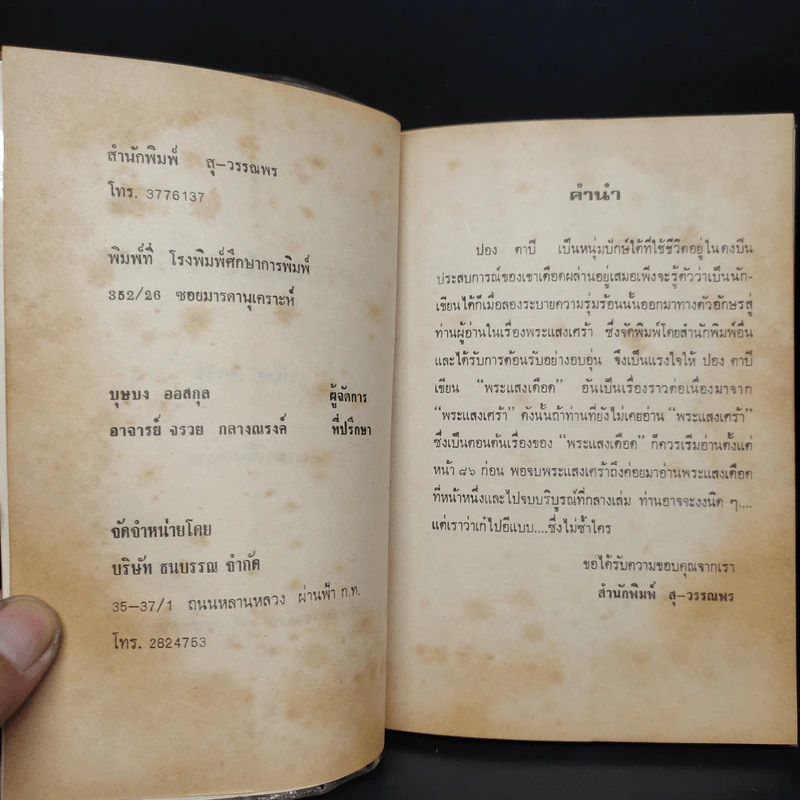 สำนักพิมพ์ สุ–วรรณพร
โทร. 3776137
พิมพ์ที่ โรงพิมพ์ศึกษาการพิมพ์
352/26 ซอยมารดานุเคราะห์
บุษบง ออสกุล ผู้จัดการ
อาจารย์ จรวย กลางณรงค์ ที่ปรึกษา
จัดจำหน่ายโดย
บริษัท ธนบรรณ จำกัด
35–37/1 ถนนหลานหลวง ผ่านฟ้า ก.ท.
โทร. 2824753
คำนำ
ปอง ตาปี เป็นหนุ่มปักษ์ใต้ที่ใช้ชีวิตอยู่ในดงปืน
ประสบการณ์ของเขาเดือดผล่านอยู่เสมอเพิ่งจะรู้ตัวว่าเป็นนัก-
เขียนได้ก็เมื่อลองระบายความรุ่มร้อนนั้นออกมาทางตัวอักษรสู่
ท่านผู้อ่านในเรื่องพระแสงเศร้า ซึ่งจัดพิมพ์โดยสำนักพิมพ์อื่น
และได้รับการต้อนรับอย่างอบอุ่น จึงเป็นแรงใจให้ ปอง ตาปี
เขียน “พระแสงเดือด” อันเป็นเรื่องราวต่อเนื่องมาจาก
“พระแสงเศร้า” ดังนั้นถ้าท่านที่ยังไม่เคยอ่าน “พระแสงเศร้า”
ซึ่งเป็นตอนต้นเรื่องของ “พระแสงเดือด” ก็ควรเริ่มอ่านตั้งแต่
หน้า ๘๖ ก่อน พอจบพระแสงเศร้าถึงค่อยมาอ่านพระแสงเดือด
ที่หน้าหนึ่งและไปจบบริบูรณ์ที่กลางเล่ม ท่านอาจจะงงนิด ๆ....
แต่เราว่าเก๋ไปอีแบบ....ซึ่งไม่ซ้ำใคร
ขอได้รับความขอบคุณจากเรา
สำนักพิมพ์ สุ–วรรณพร